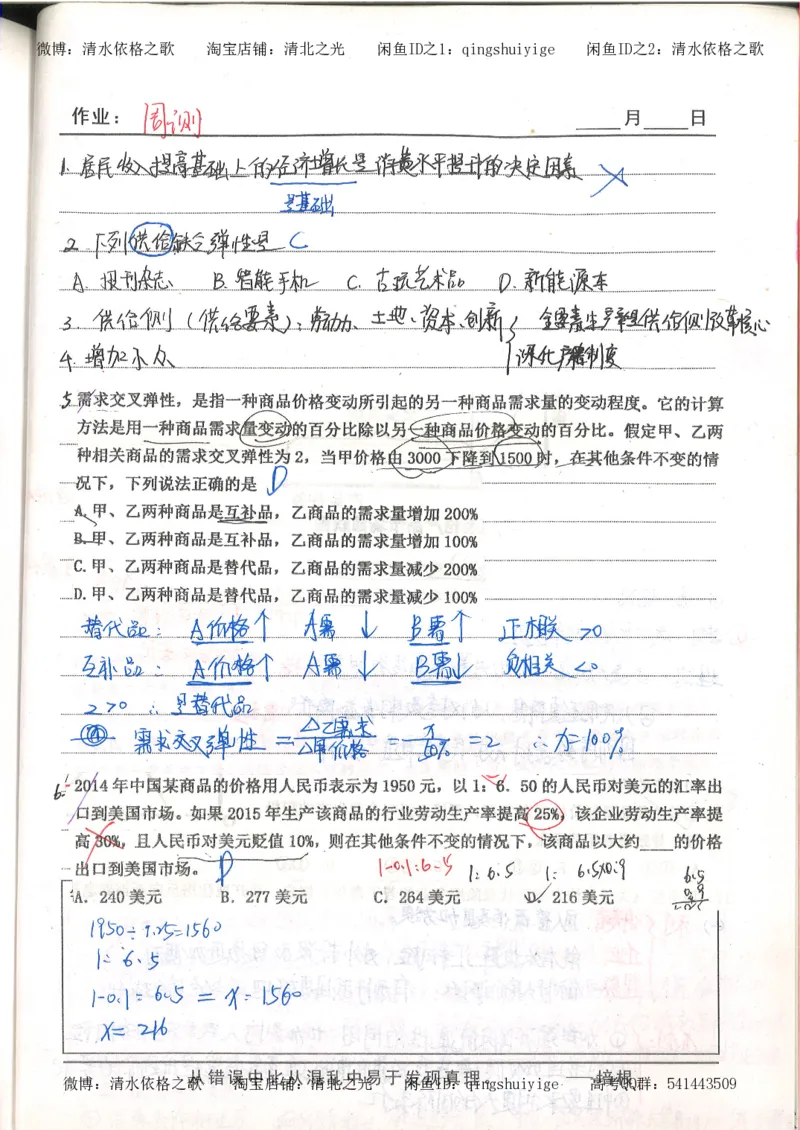 微博：清水依格之歌 淘宝店铺：清北之光 闲鱼ID之1：qingshuiyige 闲鱼ID之2：清水依格之歌
作业：周测 月 日
1. 居民收入提高基础上的经济增长是消费水平提升的决定因素 ×
是基础
2. 下列供给缺乏弹性是 C
A. 报刊杂志 B. 智能手机 C. 古玩艺术品 D. 新能源车
3. 供给侧（供给要素）：劳动力、土地、资本、创新 全要素生产率是供给侧改革核心
4. 增加小众 深化产权制度
5. 需求交叉弹性，是指一种商品价格变动所引起的另一种商品需求量的变动程度。它的计算
方法是用一种商品需求量变动的百分比除以另一种商品价格变动的百分比。假定甲、乙两
种相关商品的需求交叉弹性为2，当甲价格由3000下降到1500时，在其他条件不变的情
况下，下列说法正确的是 D
A. 甲、乙两种商品是互补品，乙商品的需求量增加200%
B. 甲、乙两种商品是互补品，乙商品的需求量增加100%
C. 甲、乙两种商品是替代品，乙商品的需求量减少200%
D. 甲、乙两种商品是替代品，乙商品的需求量减少100%
替代品： A价格↑ A需↓ B需↑ 正相关 >0
互补品： A价格↑ A需↓ B需↓ 负相关 <0
2>0 ∴是替代品
需求交叉弹性 = △乙需求/△甲价格 = x/50% = 2 ∴x=100%
6. 2014年中国某商品的价格用人民币表示为1950元，以1：6.50的人民币对美元的汇率出
口到美国市场。如果2015年生产该商品的行业劳动生产率提高25%，该企业劳动生产率提
高30%，且人民币对美元贬值10%，则在其他条件不变的情况下，该商品以大约____的价格
出口到美国市场。 D 1-0.1:6.5 1:6.5 1:6.5×0.9 6.5
A. 240美元 B. 277美元 C. 264美元 D. 216美元 0.9
1950÷1.25=1560
1：6.5
1-0.1：6.5 = x：1560
x=216
从错误中比从混乱中易于发现真理。 培根
微博：清水依格之歌 淘宝店铺：清北之光 闲鱼ID：qingshuiyige 高考QQ群：541443509